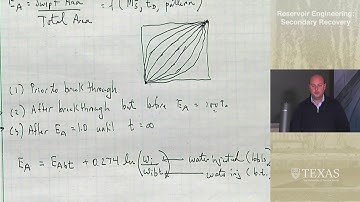 E_A = Swept Area / Total Area = f ( M̄s, t_D, pattern)
Reservoir Engineering:
Secondary Recovery
(1) Prior to breakthrough
(2) After breakthrough but before E_A = 100%
(3) After E_A = 1.0 until t = ∞
E_A = E_Abt + 0.274 ln (Wi / Wibt)
water injected (bbls)
water inj (b.t.)
TEXAS